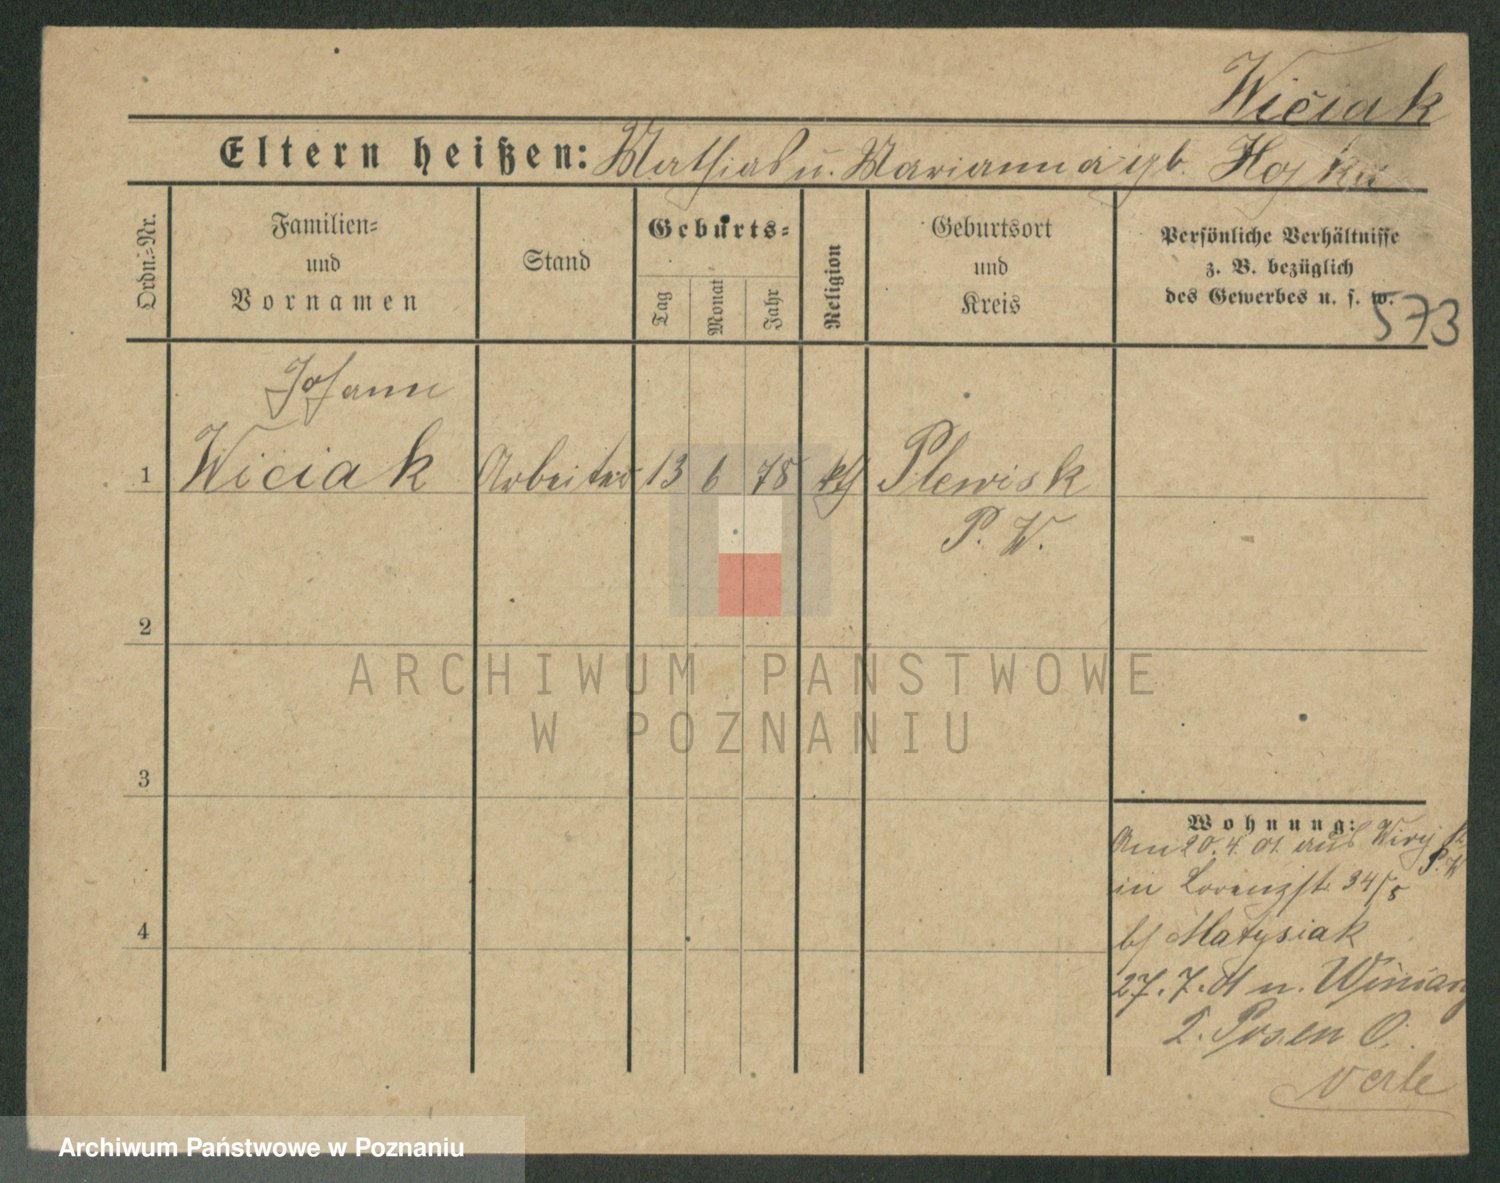 Wiciak
Eltern heißen: Mathias u. Marianna gb.
Ordn.-Nr.
Familien-
und
Vornamen
Stand
Geburts-
Tag
Monat
Jahr
Religion
Geburtsort
und
Kreis
Persönliche Verhältnisse
z. B. bezüglich
des Gewerbes u. s. w.
573
Johann
1 Wiciak Arbeiter 13 6 78 kth Plewisk
P. W.
2
3
4
Wohnung:
Am 20.4.01. aus
P. W
in Lorenzstr. 34/5
b/ Matysiak
27.7.01 n. Winiary
Posen O.
ARCHIWUM PAŃSTWOWE
W POZNANIU
Archiwum Państwowe w Poznaniu